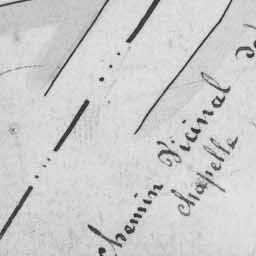 Chemin Vicinal de
chapelle